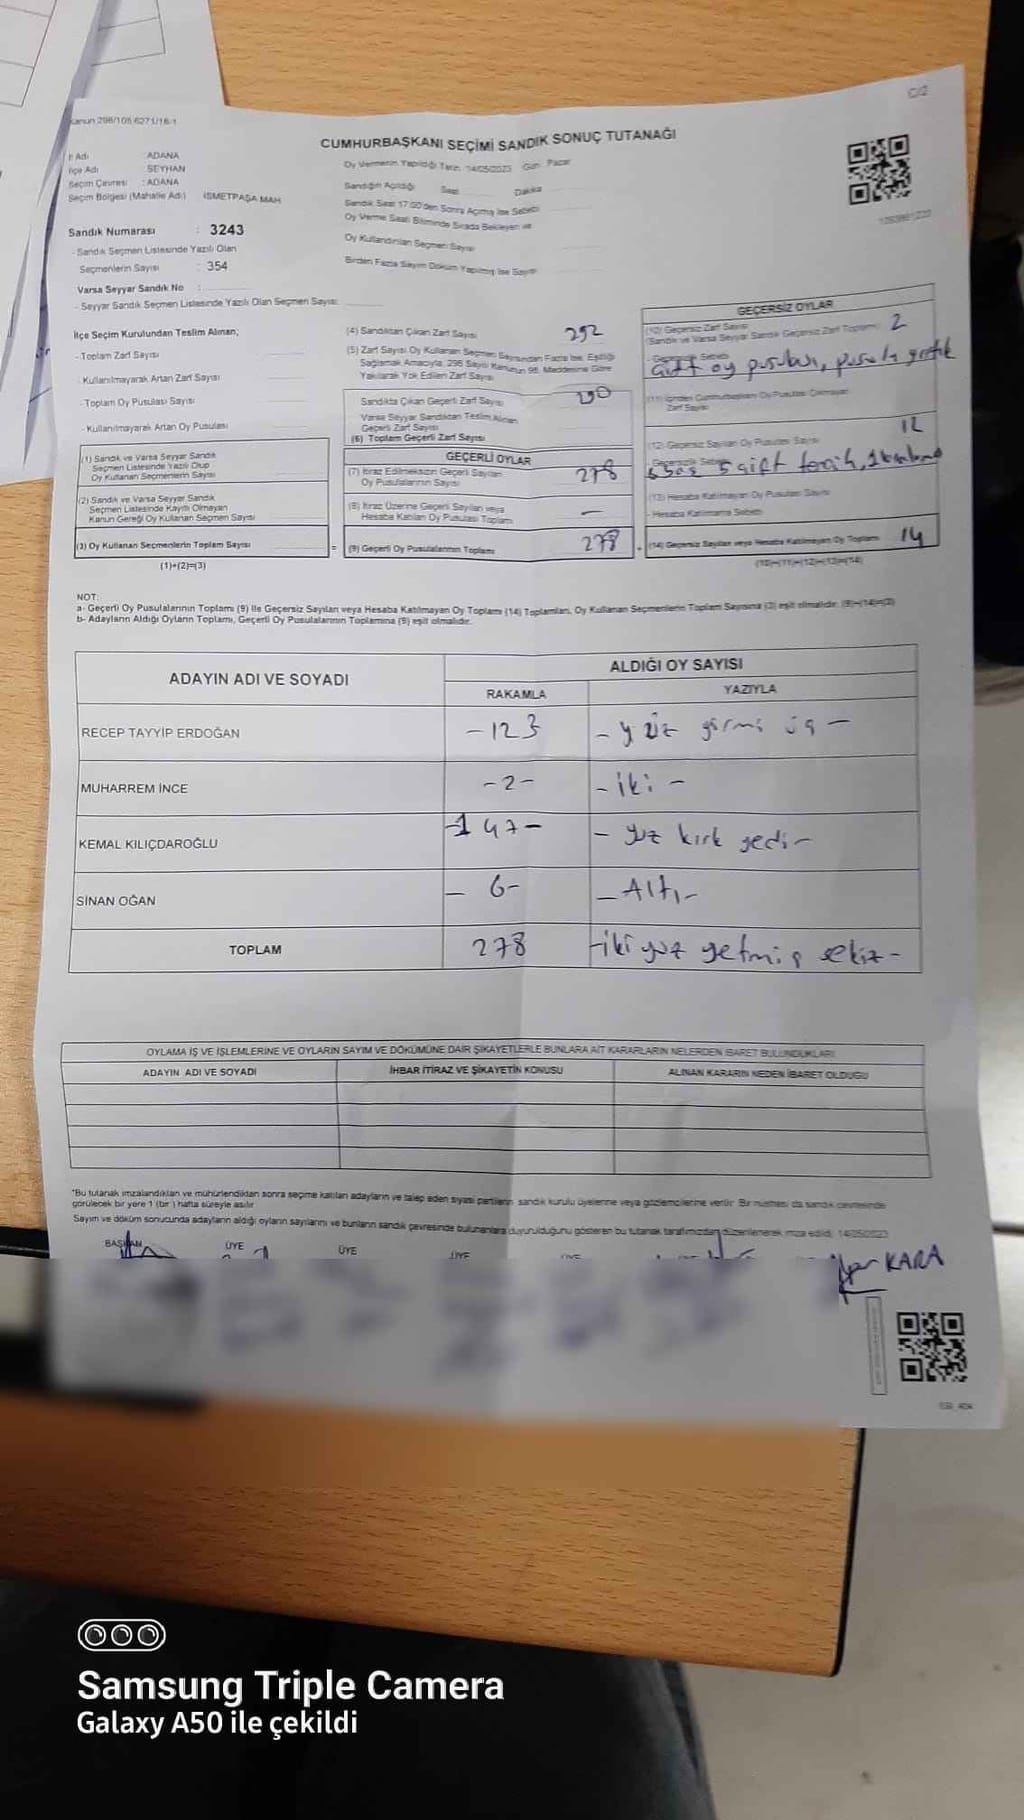 Kanun 298/105 6271/16-1
C/2
CUMHURBAŞKANI SEÇİMİ SANDIK SONUÇ TUTANAĞI
İl Adı : ADANA
İlçe Adı : SEYHAN
Seçim Çevresi : ADANA
Seçim Bölgesi (Mahalle Adı) İSMETPAŞA MAH
Sandık Numarası : 3243
- Sandık Seçmen Listesinde Yazılı Olan
Seçmenlerin Sayısı : 354
Varsa Seyyar Sandık No :
- Seyyar Sandık Seçmen Listesinde Yazılı Olan Seçmen Sayısı:
Oy Vermenin Yapıldığı Tarih: 14/05/2023 Gün: Pazar
Sandığın Açıldığı Saat Dakika
Sandık Saat 17:00'den Sonra Açılmış İse Sebebi
Oy Verme Saati Bitiminde Sırada Bekleyen ve
Oy Kullandırılan Seçmen Sayısı
Birden Fazla Sayım Döküm Yapılmış İse Sayısı
İlçe Seçim Kurulundan Teslim Alınan;
- Toplam Zarf Sayısı
- Kullanılmayarak Artan Zarf Sayısı
- Toplam Oy Pusulası Sayısı
- Kullanılmayarak Artan Oy Pusulası
(1) Sandık ve Varsa Seyyar Sandık
Seçmen Listesinde Yazılı Olup
Oy Kullanan Seçmenlerin Sayısı
(2) Sandık ve Varsa Seyyar Sandık
Seçmen Listesinde Kayıtlı Olmayan
Kanun Gereği Oy Kullanan Seçmen Sayısı
(3) Oy Kullanan Seçmenlerin Toplam Sayısı
(1)+(2)=(3)
(4) Sandıktan Çıkan Zarf Sayısı 292
(5) Zarf Sayısı Oy Kullanan Seçmen Sayısından Fazla İse, Eşitliği
Sağlamak Amacıyla, 298 Sayılı Kanunun 98. Maddesine Göre
Yakılarak Yok Edilen Zarf Sayısı
Sandıkta Çıkan Geçerli Zarf Sayısı 290
Varsa Seyyar Sandıktan Teslim Alınan
Geçerli Zarf Sayısı
(6) Toplam Geçerli Zarf Sayısı
GEÇERLİ OYLAR
(7) İtiraz Edilmeksizin Geçerli Sayılan
Oy Pusulalarının Sayısı 278
(8) İtiraz Üzerine Geçerli Sayılan veya
Hesaba Katılan Oy Pusulası Toplamı –
= (9) Geçerli Oy Pusulalarının Toplamı 278
GEÇERSİZ OYLAR
(10) Geçersiz Zarf Sayısı
(Sandık ve Varsa Seyyar Sandık Geçersiz Zarf Toplamı) 2
- Geçersizlik Sebebi
çift oy pusulası, pusula yırtık
Zarf Sayısı
(12) Geçersiz Sayılan Oy Pusulası Sayısı 12
5 çift tercih,
(13) Hesaba Katılmayan Oy Pusulası Sayısı
- Hesaba Katılmama Sebebi
+ (14) Geçersiz Sayılan veya Hesaba Katılmayan Oy Toplamı 14
(10)+(11)+(12)+(13)=(14)
NOT:
a- Geçerli Oy Pusulalarının Toplamı (9) ile Geçersiz Sayılan veya Hesaba Katılmayan Oy Toplamı (14) Toplamları, Oy Kullanan Seçmenlerin Toplam Sayısına (3) eşit olmalıdır. (9)+(14)=(3)
b- Adayların Aldığı Oyların Toplamı, Geçerli Oy Pusulalarının Toplamına (9) eşit olmalıdır.
ADAYIN ADI VE SOYADI
ALDIĞI OY SAYISI
RAKAMLA YAZIYLA
RECEP TAYYİP ERDOĞAN – 123 – yüz yirmi üç –
MUHARREM İNCE – 2 – – iki –
KEMAL KILIÇDAROĞLU – 147 – – yüz kırk yedi –
SİNAN OĞAN – 6 – – Altı –
TOPLAM 278 – iki yüz yetmiş sekiz –
OYLAMA İŞ VE İŞLEMLERİNE VE OYLARIN SAYIM VE DÖKÜMÜNE DAİR ŞİKAYETLERLE BUNLARA AİT KARARLARIN NELERDEN İBARET BULUNDUKLARI
ADAYIN ADI VE SOYADI İHBAR İTİRAZ VE ŞİKAYETİN KONUSU ALINAN KARARIN NEDEN İBARET OLDUĞU
*Bu tutanak imzalandıktan ve mühürlendikten sonra seçime katılan adayların ve talep eden siyasi partilerin sandık kurulu üyelerine veya gözlemcilerine verilir. Bir nüshası da sandık çevresinde
görülecek bir yere 1 (bir) hafta süreyle asılır
Sayım ve döküm sonucunda adayların aldığı oyların sayılarını ve bunların sandık çevresinde bulunanlara duyurulduğunu gösteren bu tutanak tarafımızdan düzenlenerek imza edildi. 14/05/2023
BAŞKAN ÜYE ÜYE ÜYE ÜYE
KARA
Samsung Triple Camera
Galaxy A50 ile çekildi